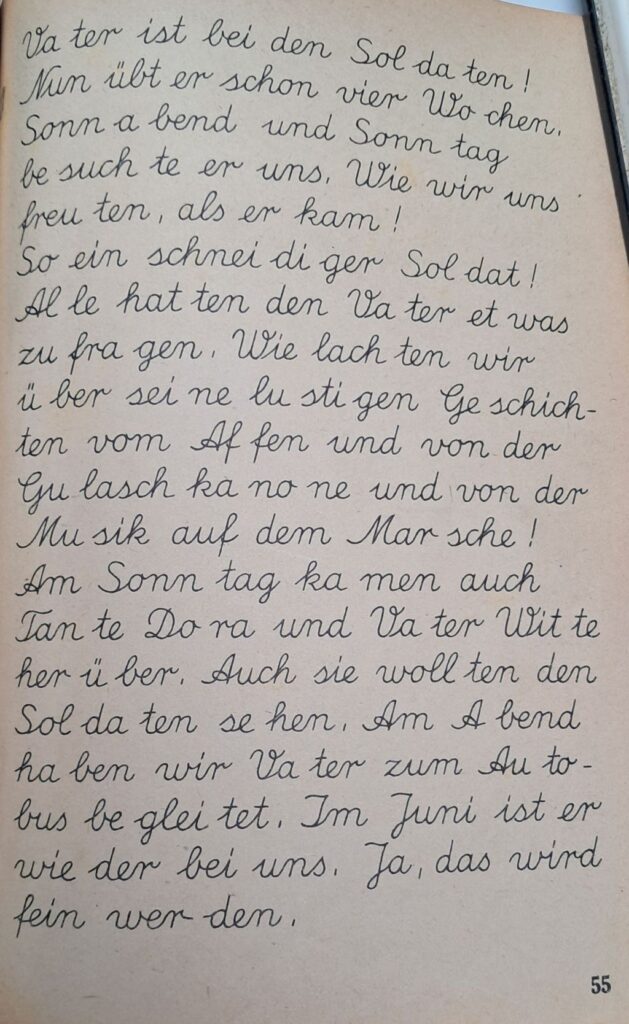 Va ter ist bei den Sol da ten!
Nun übt er schon vier Wo chen.
Sonn a bend und Sonn tag
be such te er uns. Wie wir uns
freu ten, als er kam!
So ein schnei di ger Sol dat!
Al le hat ten den Va ter et was
zu fra gen. Wie lach ten wir
ü ber sei ne lu sti gen Ge schich-
ten vom Af fen und von der
Gu lasch ka no ne und von der
Mu sik auf dem Mar sche!
Am Sonn tag ka men auch
Tan te Do ra und Va ter Wit te
her ü ber. Auch sie woll ten den
Sol da ten se hen. Am A bend
ha ben wir Va ter zum Au to-
bus be glei tet. Im Juni ist er
wie der bei uns. Ja, das wird
fein wer den.
55